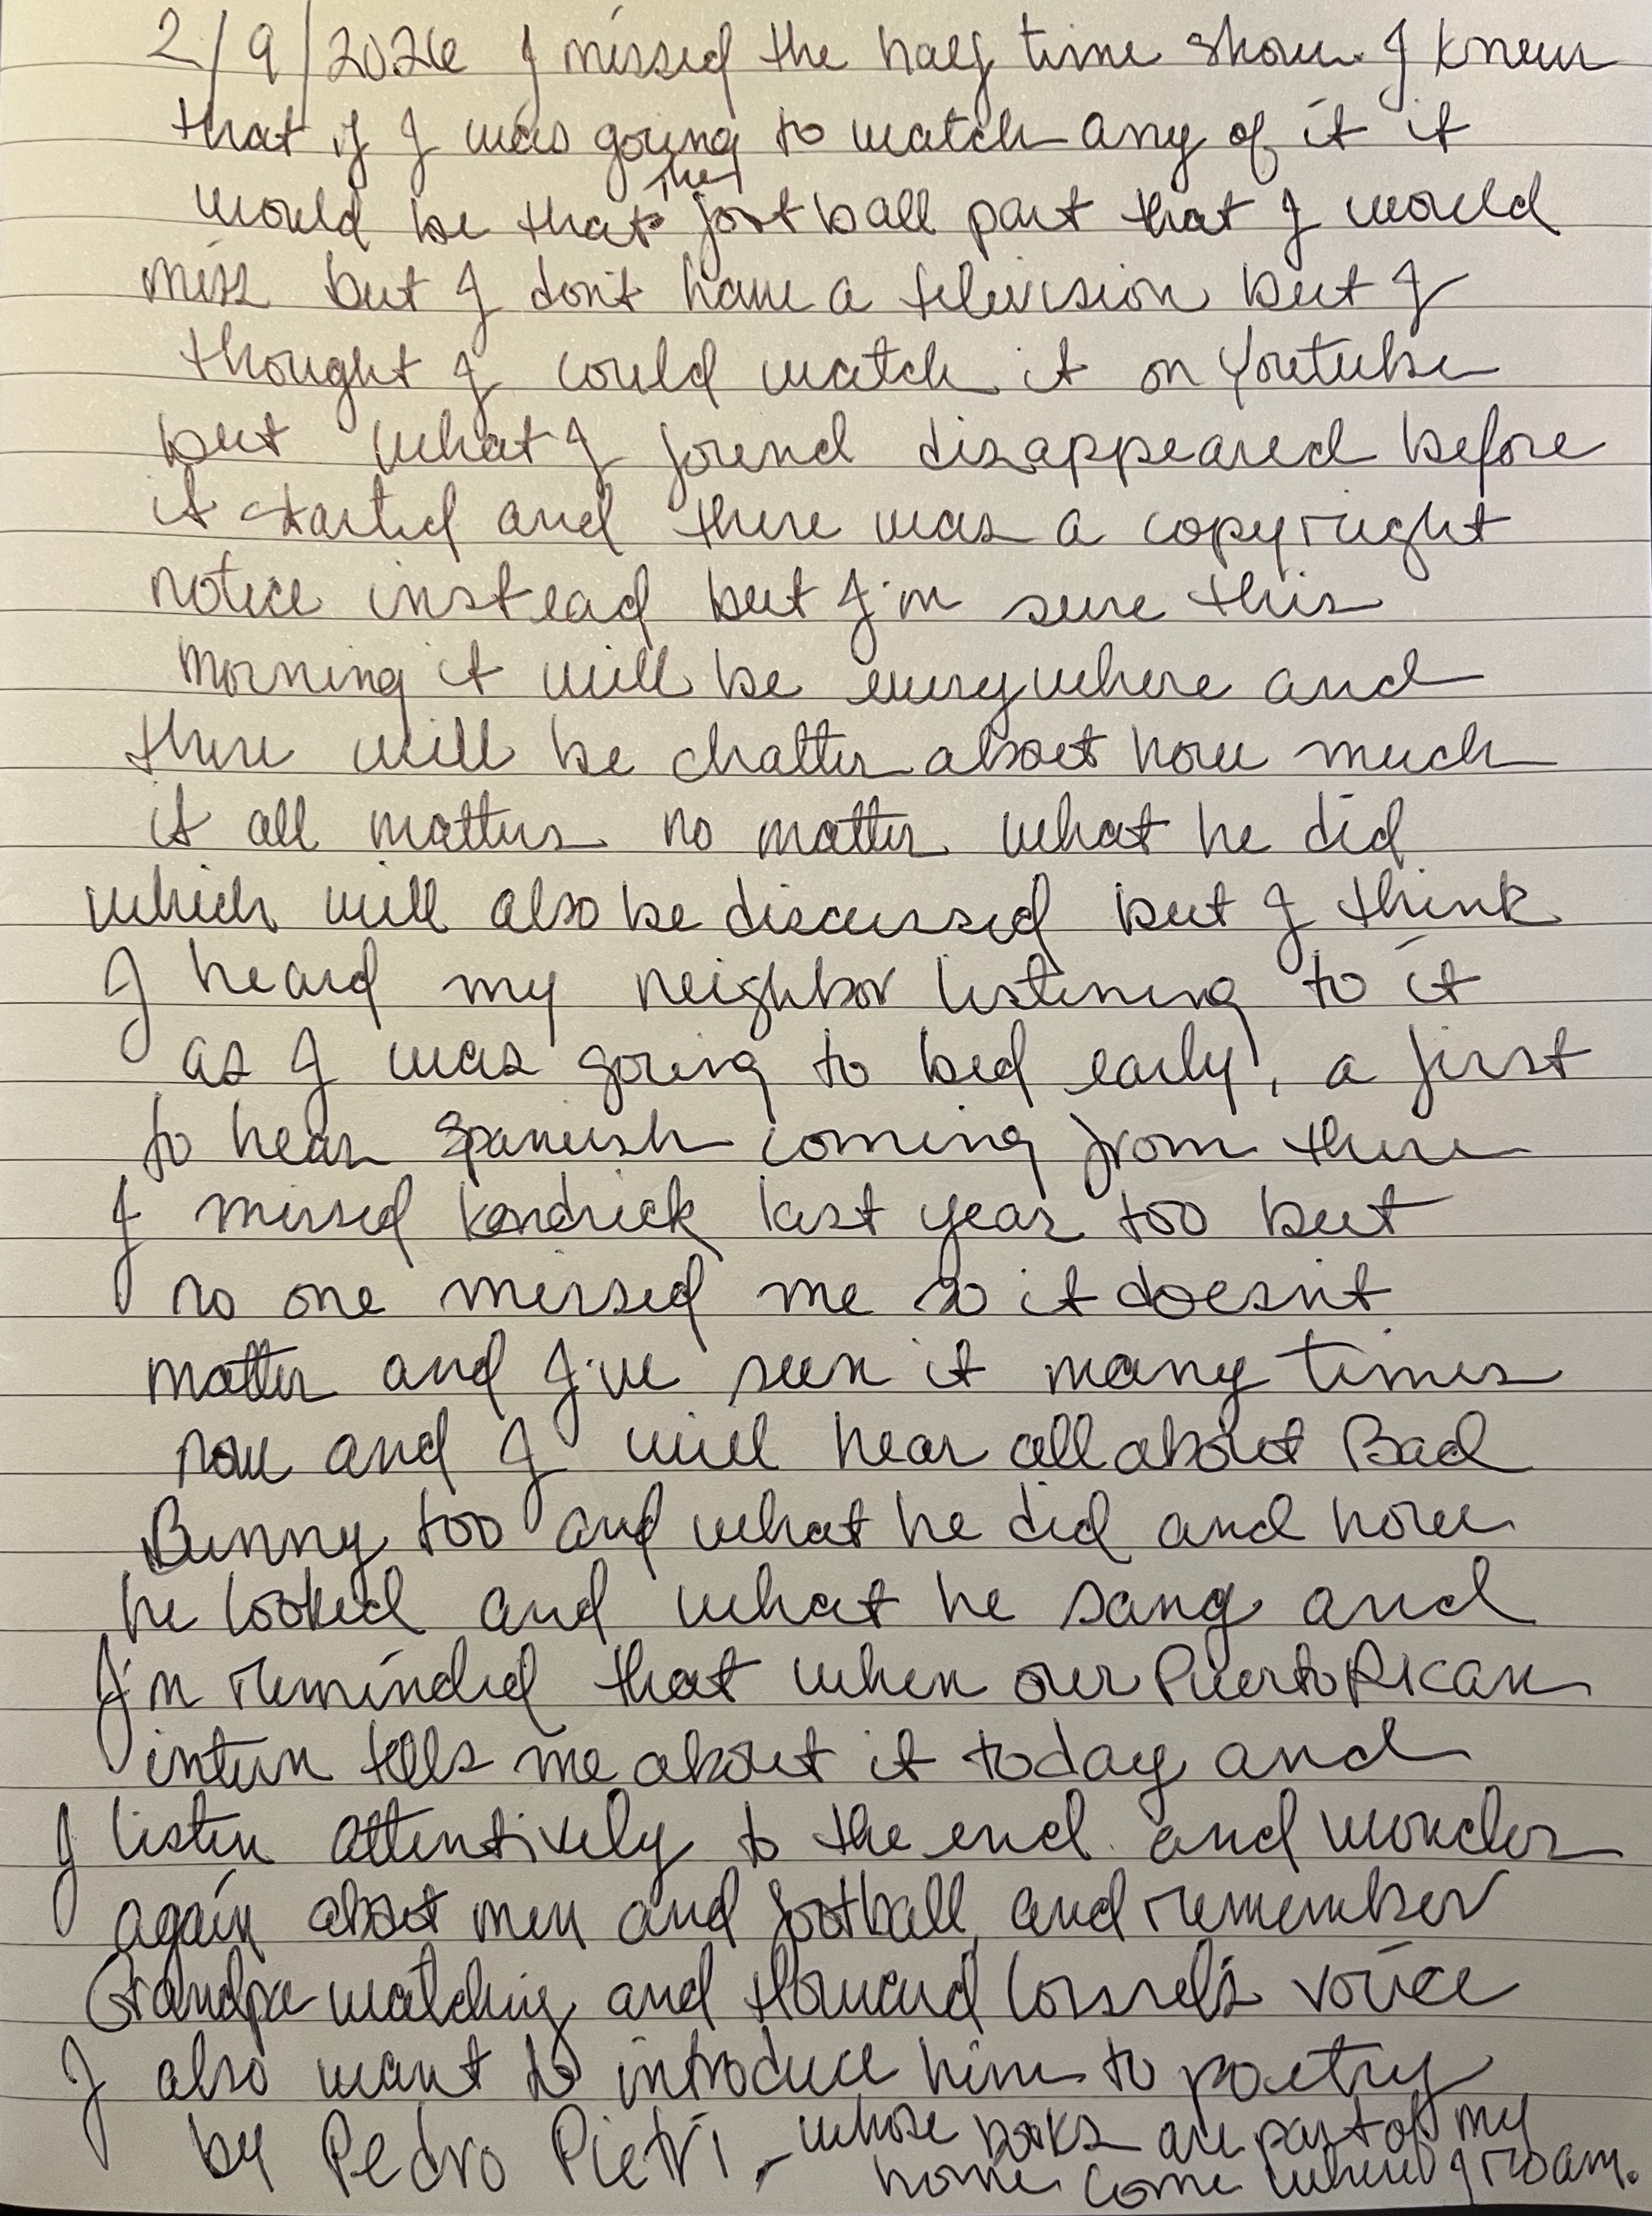 2/9/2026 I missed the half time show. I knew
that if I was going to watch any of it it
the
would be that football part that I would
miss but I don't have a television but I
thought I could watch it on Youtube
but what I found disappeared before
it started and there was a copyright
notice instead but I'm sure this
morning it will be everywhere and
there will be chatter about how much
it all matters no matter what he did
which will also be discussed but I think
I heard my neighbor listening to it
as I was going to bed early, a first
to hear Spanish coming from there
I missed Kendrick last year too but
no one missed me so it doesn't
matter and I've seen it many times
now and I will hear all about Bad
Bunny too and what he did and how
he looked and what he sang and
I'm reminded that when our Puerto Rican
intern tells me about it today and
I listen attentively to the end and wonder
again about men and football and remember
Grandpa watching and Howard Cossel's voice
I also want to introduce him to poetry
by Pedro Pietri - whose books are part of my
home come where I roam.